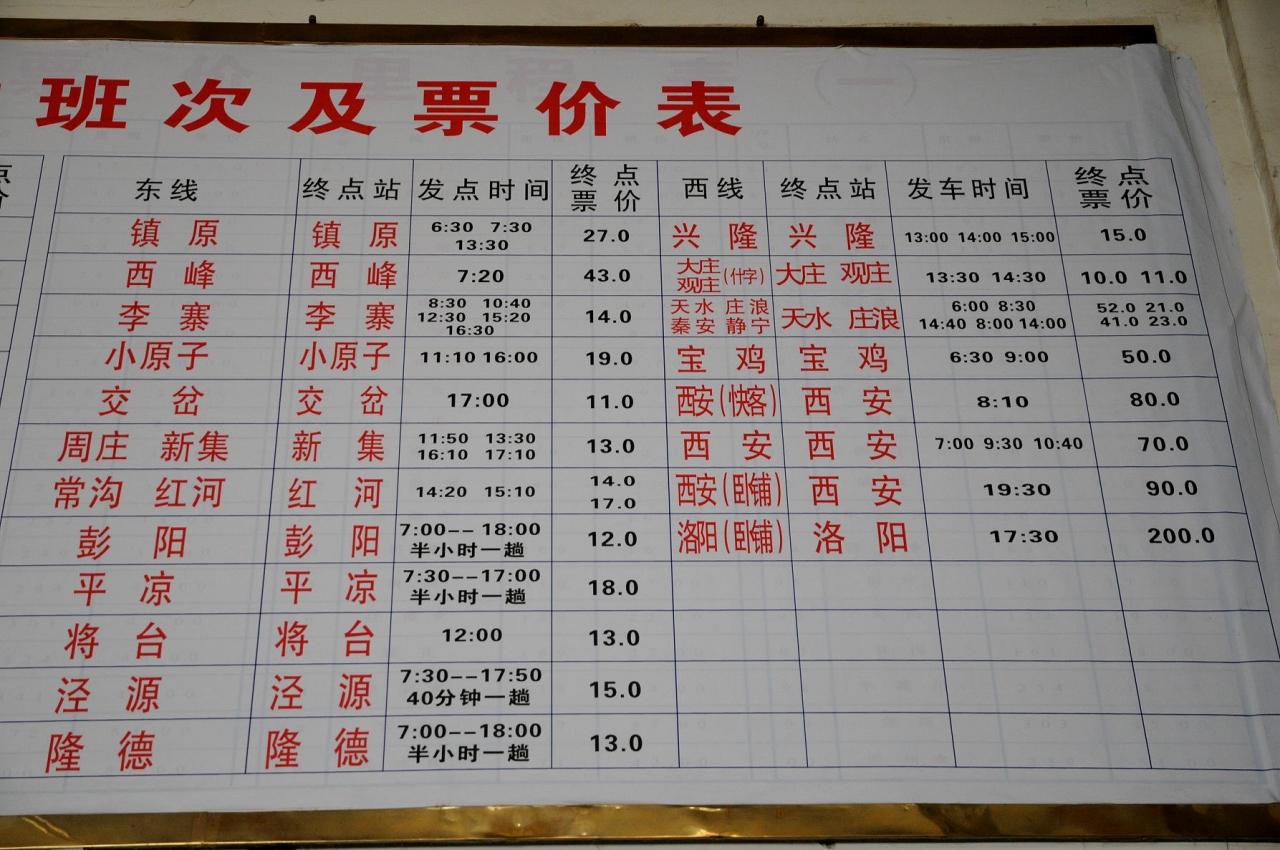 班次及票价表
东线 终点站 发点时间 终点票价 西线 终点站 发车时间 终点票价
镇原 镇原 6:30 7:30 13:30 27.0 兴隆 兴隆 13:00 14:00 15:00 15.0
西峰 西峰 7:20 43.0 大庄 观庄 (什字) 大庄 观庄 13:30 14:30 10.0 11.0
李寨 李寨 8:30 10:40 12:30 15:20 16:30 14.0 天水 庄浪 秦安 静宁 天水 庄浪 6:00 8:30 14:40 8:00 14:00 52.0 21.0 41.0 23.0
小原子 小原子 11:10 16:00 19.0 宝鸡 宝鸡 6:30 9:00 50.0
交岔 交岔 17:00 11.0 西安(快客) 西安 8:10 80.0
周庄 新集 新集 11:50 13:30 16:10 17:10 13.0 西安 西安 7:00 9:30 10:40 70.0
常沟 红河 红河 14:20 15:10 14.0 17.0 西安(卧铺) 西安 19:30 90.0
彭阳 彭阳 7:00--18:00 半小时一趟 12.0 洛阳(卧铺) 洛阳 17:30 200.0
平凉 平凉 7:30--17:00 半小时一趟 18.0
将台 将台 12:00 13.0
泾源 泾源 7:30--17:50 40分钟一趟 15.0
隆德 隆德 7:00--18:00 半小时一趟 13.0